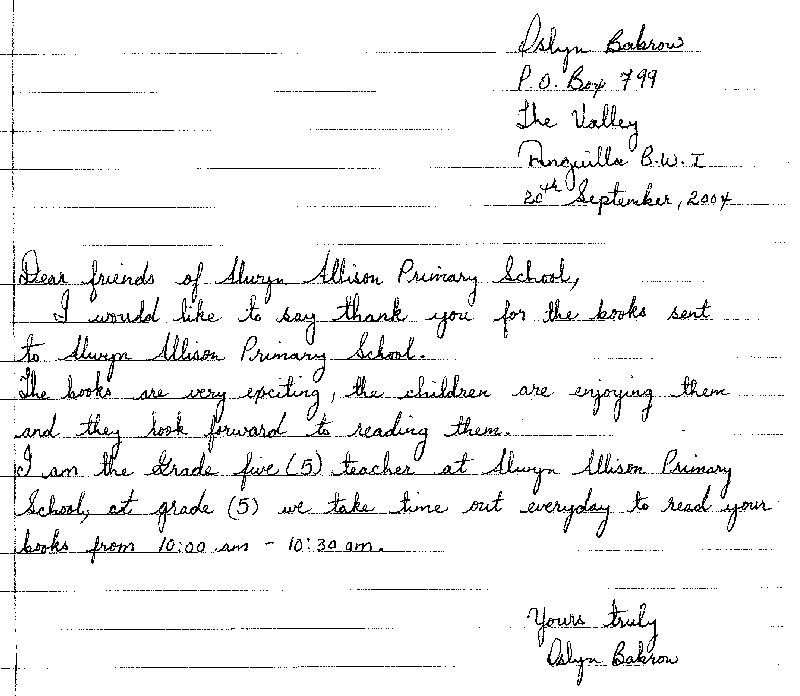 Oslyn Bakrow
P.O. Box 799
The Valley
Anguilla B.W.I
20th September, 2004
Dear friends of Alwyn Allison Primary School,
I would like to say thank you for the books sent
to Alwyn Allison Primary School.
The books are very exciting, the children are enjoying them
and they look forward to reading them.
I am the Grade five (5) teacher at Alwyn Allison Primary
School, at grade (5) we take time out everyday to read your
books from 10:00 am - 10:30 am.
Yours truly
Oslyn Bakrow